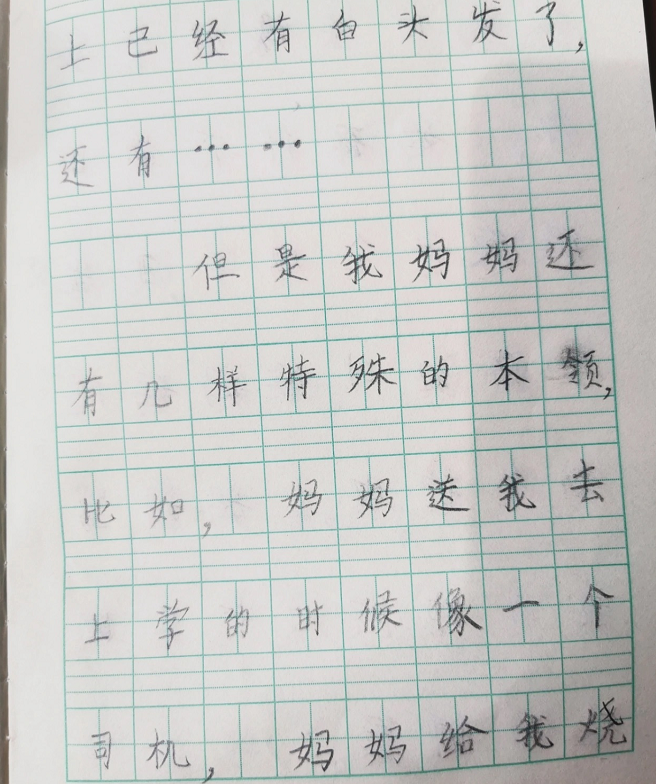 上已经有白头发了,
还有……
但是我妈妈还
有几样特殊的本领,
比如,妈妈送我去
上学的时候像一个
司机,妈妈给我烧